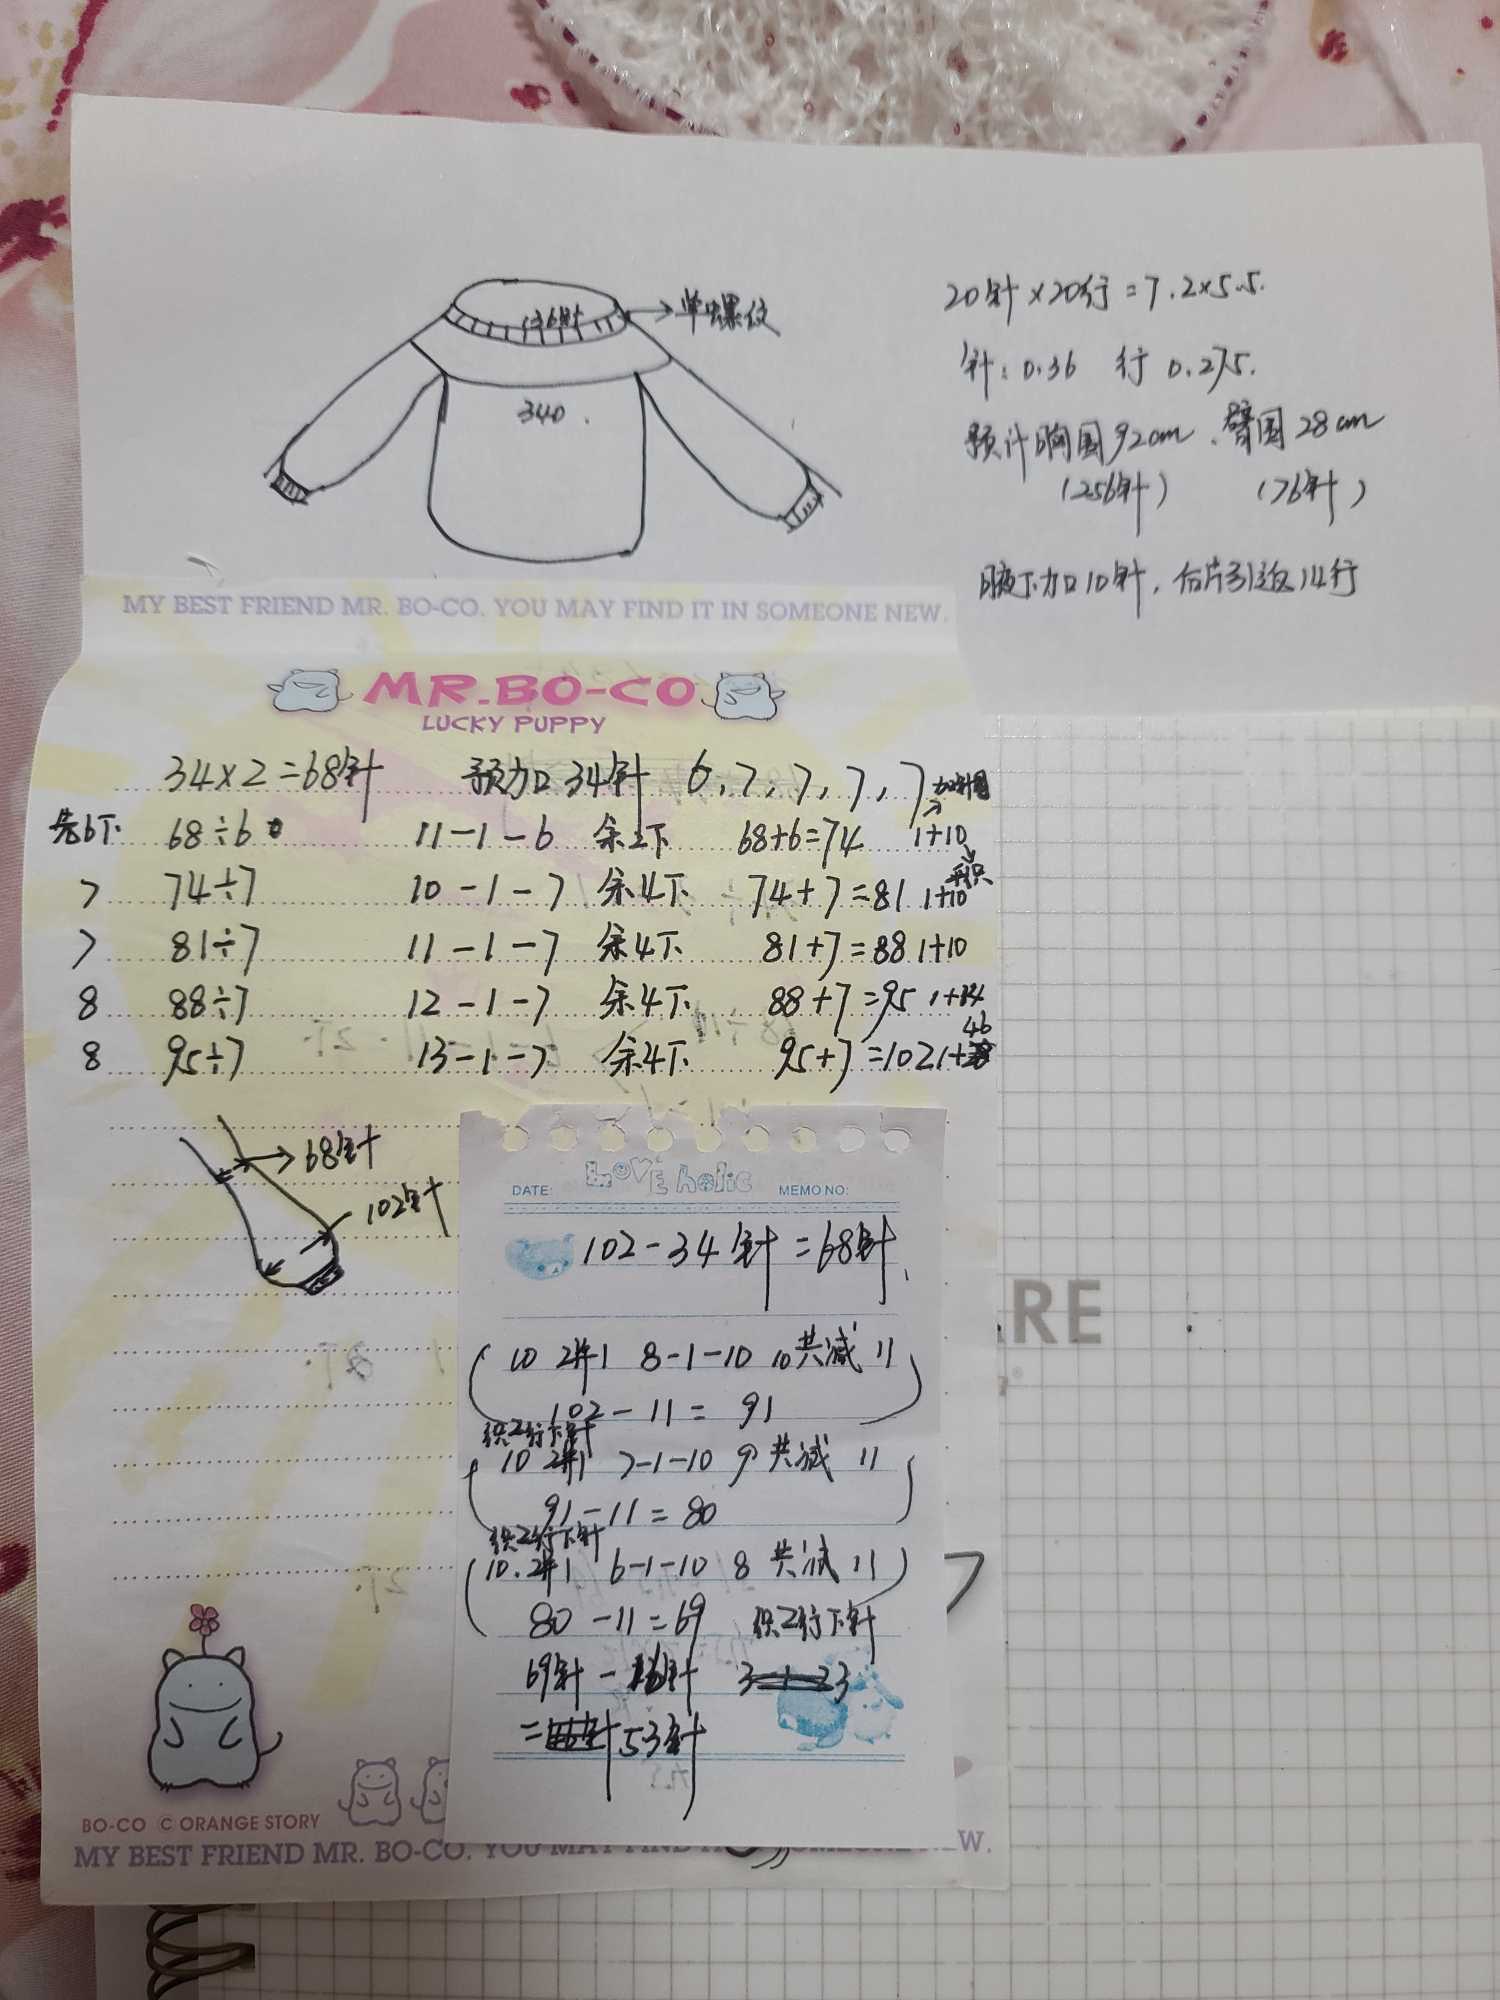 136针
单螺纹
340.
20针×20行=7.2×5.5.
针:0.36 行 0.275.
预计胸围92cm、臂围28cm
(256针) (76针)
腋下加10针,后片引返14行
MY BEST FRIEND MR. BO-CO. YOU MAY FIND IT IN SOMEONE NEW.
MR.BO-CO
LUCKY PUPPY
34×2=68针 预加34针 6,7,7,7,7
加针圈
先6下 68÷6 11-1-6 余2下 68+6=74 1+10
平织
7 74÷7 10-1-7 余4下 74+7=81 1+10
7 81÷7 11-1-7 余4下 81+7=88 1+10
8 88÷7 12-1-7 余4下 88+7=95 1+14
46
8 95÷7 13-1-7 余4下 95+7=102 1+
68针
102针
LOVE holic
DATE: MEMO NO:
102-34针=68针
10 2并1 8-1-10 10 共减 11
102-11=91
织2行下针
10 2并1 7-1-10 9 共减 11
91-11=80
织2行下针
10.2并1 6-1-10 8 共减 11
80-11=69 织2行下针
69针-16针
=53针
ARE
BO-CO © ORANGE STORY
MY BEST FRIEND MR. BO-CO. YOU MAY FIND IT IN SOMEONE NEW.